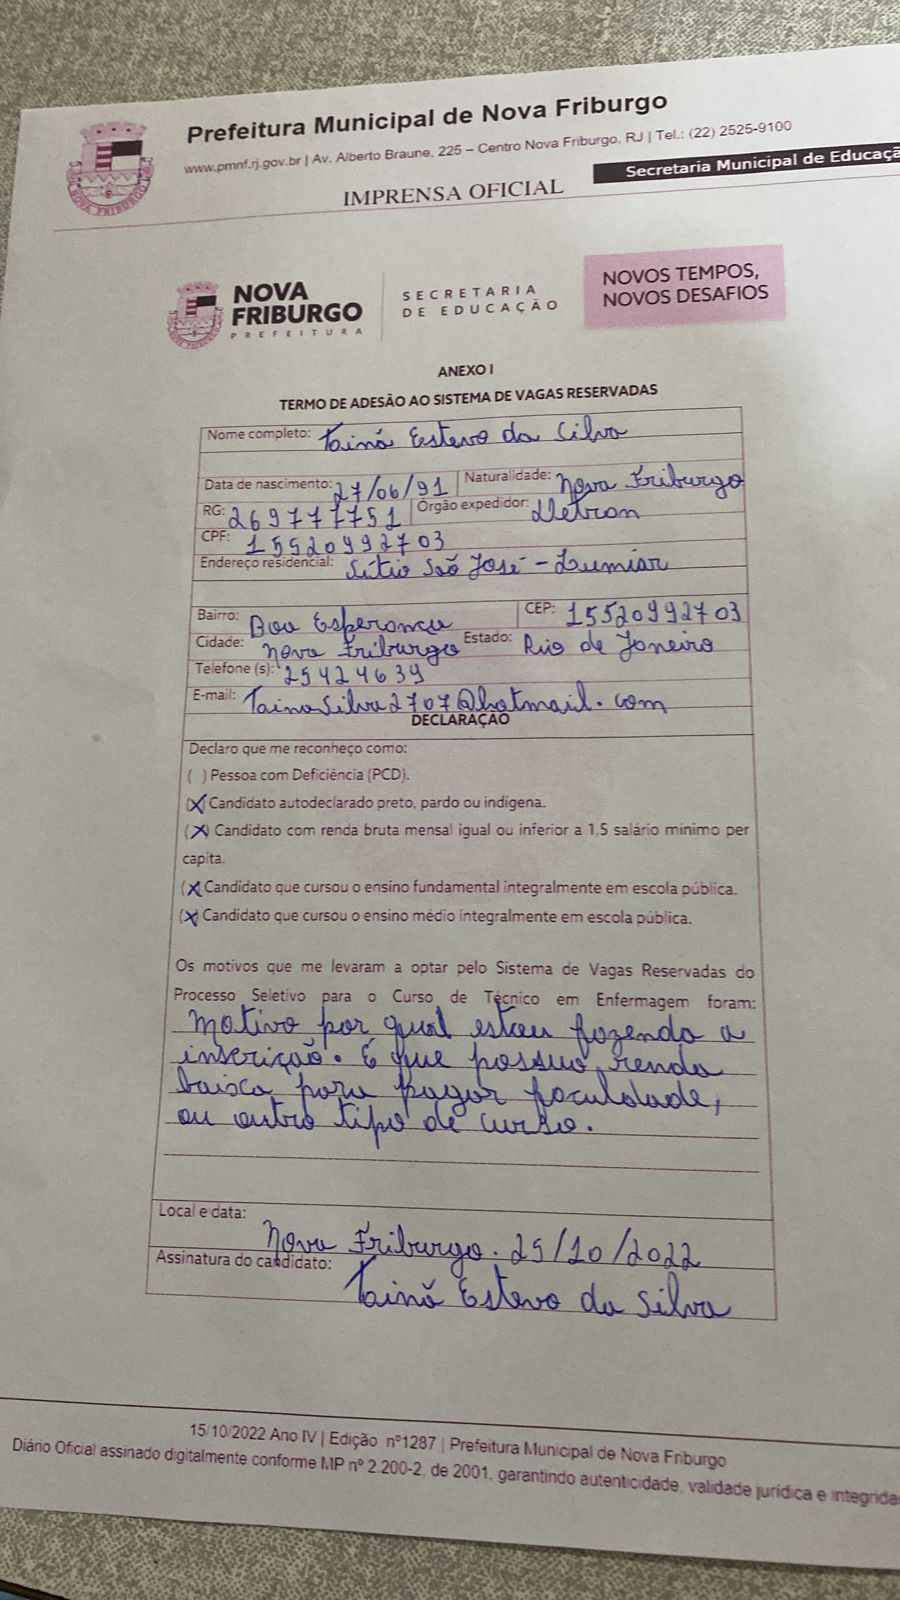 Prefeitura Municipal de Nova Friburgo
www.pmnf.rj.gov.br | Av. Alberto Braune, 225 – Centro Nova Friburgo, RJ | Tel.: (22) 2525-9100
Secretaria Municipal de Educaçã
IMPRENSA OFICIAL
NOVA FRIBURGO
PREFEITURA
SECRETARIA
DE EDUCAÇÃO
NOVOS TEMPOS,
NOVOS DESAFIOS
ANEXO I
TERMO DE ADESÃO AO SISTEMA DE VAGAS RESERVADAS
Nome completo: Tainá Estevo da Silva
Data de nascimento: 27/06/91 Naturalidade: Nova Friburgo
RG: 269777751 Órgão expedidor: Detran
CPF: 15520992703
Endereço residencial: Sítio São José - Lumiar
Bairro: Boa Esperança CEP: 15520992703
Cidade: Nova Friburgo Estado: Rio de Janeiro
Telefone (s): 25424639
E-mail: TainaSilva2707@hotmail.com
DECLARAÇÃO
Declaro que me reconheço como:
( ) Pessoa com Deficiência (PCD).
(X) Candidato autodeclarado preto, pardo ou indígena.
(X) Candidato com renda bruta mensal igual ou inferior a 1,5 salário mínimo per
capita.
(X) Candidato que cursou o ensino fundamental integralmente em escola pública.
(X) Candidato que cursou o ensino médio integralmente em escola pública.
Os motivos que me levaram a optar pelo Sistema de Vagas Reservadas do
Processo Seletivo para o Curso de Técnico em Enfermagem foram:
Motivo por qual estou fazendo a
inscrição. É que possuo renda
baixa para pagar faculdade,
ou outro tipo de curso.
Local e data:
Nova Friburgo. 25/10/2022
Assinatura do candidato: Tainá Estevo da Silva
15/10/2022 Ano IV | Edição nº1287 | Prefeitura Municipal de Nova Friburgo
Diário Oficial assinado digitalmente conforme MP nº 2.200-2, de 2001, garantindo autenticidade, validade jurídica e integrida